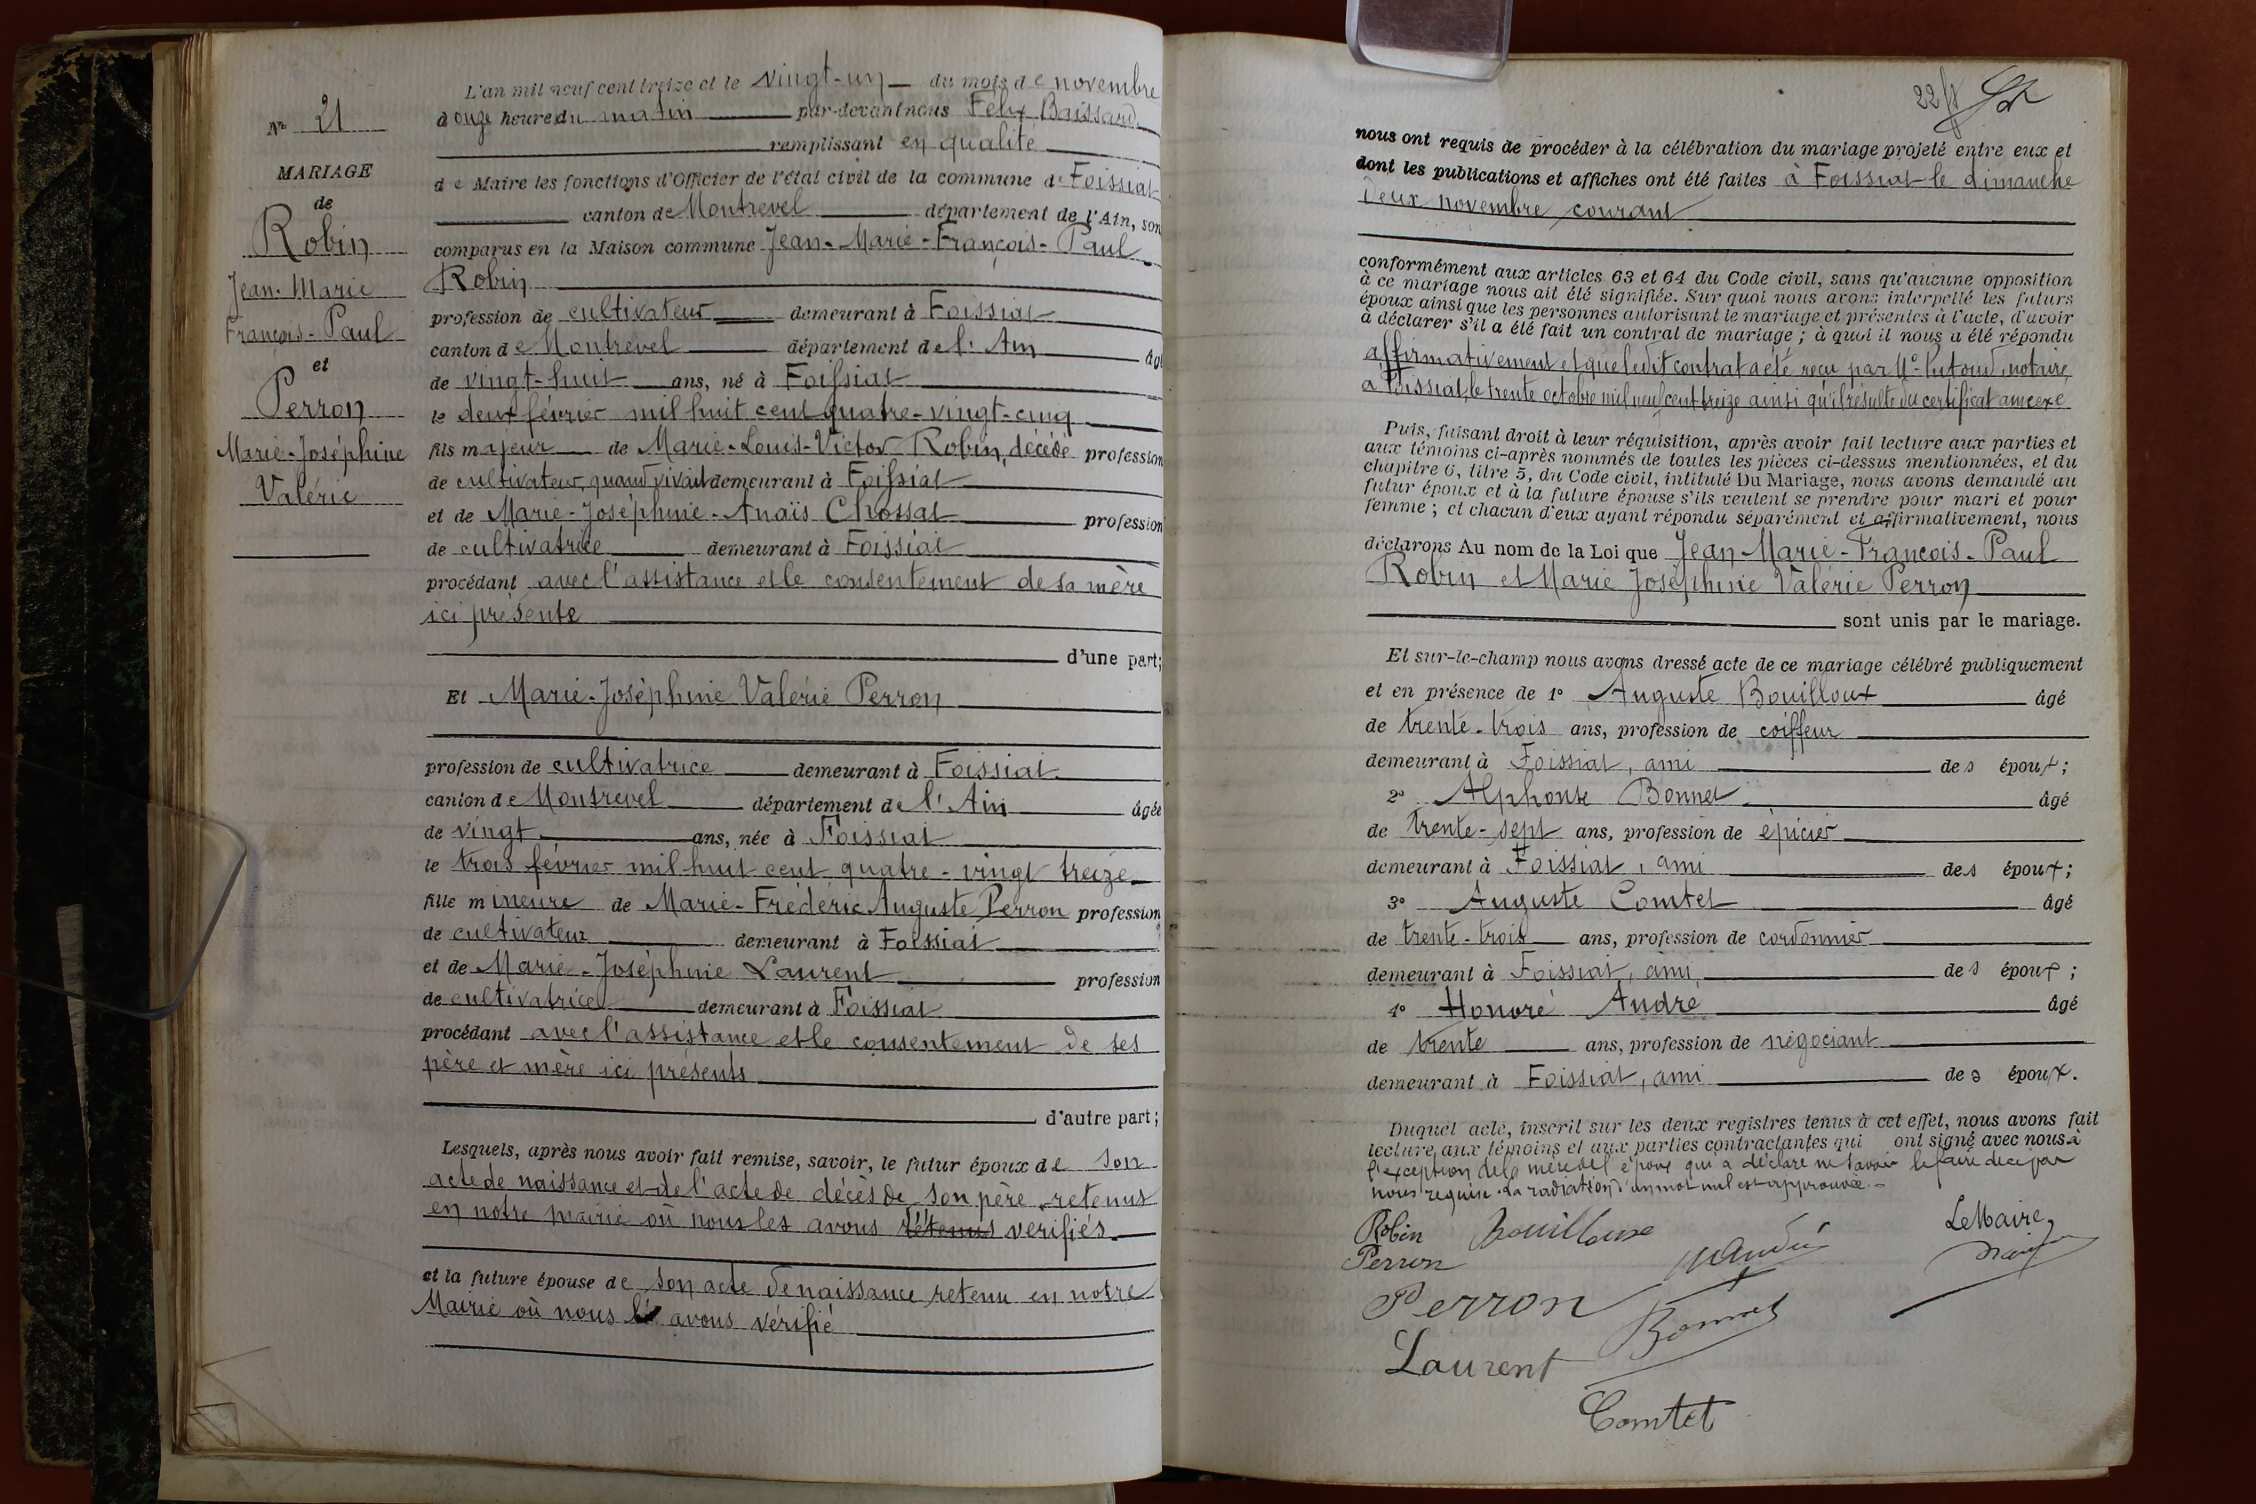 Nº 21
MARIAGE
de
Robin
Jean-Marie
François-Paul
et
Perron
Marie-Joséphine
Valérie
L'an mil neuf cent treize et le vingt-un du mois de novembre
à onze heure du matin par-devant nous Félix Baissard
remplissant en qualité
de Maire les fonctions d'Officier de l'état civil de la commune de Foissiat
canton de Montrevel département de l'Ain, son
comparus en la Maison commune Jean-Marie-François-Paul
Robin
profession de cultivateur demeurant à Foissiat
canton de Montrevel département de l'Ain âgé
de vingt-huit ans, né à Foissiat
le deux février mil huit cent quatre-vingt-cinq
fils majeur de Marie-Louis-Victor Robin, décédé profession
de cultivateur, quand vivait demeurant à Foissiat
et de Marie-Joséphine-Anaïs Chossat profession
de cultivatrice demeurant à Foissiat
procédant avec l'assistance et le consentement de sa mère
ici présente
d'une part;
Et Marie-Joséphine Valérie Perron
profession de cultivatrice demeurant à Foissiat
canton de Montrevel département de l'Ain âgée
de vingt ans, née à Foissiat
le trois février mil huit cent quatre-vingt treize
fille mineure de Marie-Frédéric Auguste Perron profession
de cultivateur demeurant à Foissiat
et de Marie-Joséphine Laurent profession
de cultivatrice demeurant à Foissiat
procédant avec l'assistance et le consentement de ses
père et mère ici présents
d'autre part;
Lesquels, après nous avoir fait remise, savoir, le futur époux de son
acte de naissance et de l'acte de décès de son père retenus
en notre mairie où nous les avons retenus vérifiés
et la future épouse de son acte de naissance retenu en notre
Mairie où nous l' avons vérifié
22
nous ont requis de procéder à la célébration du mariage projeté entre eux et
dont les publications et affiches ont été faites à Foissiat le dimanche
deux novembre courant
conformément aux articles 63 et 64 du Code civil, sans qu'aucune opposition
à ce mariage nous ait été signifiée. Sur quoi nous avons interpellé les futurs
époux ainsi que les personnes autorisant le mariage et présentes à l'acte, d'avoir
à déclarer s'il a été fait un contrat de mariage ; à quoi il nous a été répondu
affirmativement et que ledit contrat a été reçu par Mº Putoud, notaire
à Foissiat, le trente octobre mil neuf cent treize ainsi qu'il résulte du certificat annexé
Puis, faisant droit à leur réquisition, après avoir fait lecture aux parties et
aux témoins ci-après nommés de toutes les pièces ci-dessus mentionnées, et du
chapitre 6, titre 5, du Code civil, intitulé Du Mariage, nous avons demandé au
futur époux et à la future épouse s'ils veulent se prendre pour mari et pour
femme ; et chacun d'eux ayant répondu séparément et affirmativement, nous
déclarons Au nom de la Loi que Jean-Marie-François-Paul
Robin et Marie Joséphine Valérie Perron
sont unis par le mariage.
Et sur-le-champ nous avons dressé acte de ce mariage célébré publiquement
et en présence de 1º Auguste Bouilloux âgé
de trente-trois ans, profession de coiffeur
demeurant à Foissiat, ami des époux;
2º Alphonse Bonnet âgé
de trente-sept ans, profession de épicier
demeurant à Foissiat, ami des époux;
3º Auguste Comtet âgé
de trente-trois ans, profession de cordonnier
demeurant à Foissiat, ami des époux;
4º Honoré André âgé
de trente ans, profession de négociant
demeurant à Foissiat, ami des époux.
Duquel acte, inscrit sur les deux registres tenus à cet effet, nous avons fait
lecture aux témoins et aux parties contractantes qui ont signé avec nous à
l'exception de la mère de l'époux qui a déclaré ne savoir le faire de ce par
nous requise. La radiation d'un mot nul est approuvée.
Robin Bouilloux Le Maire
Perron André
Perron Bonnet
Laurent
Comtet